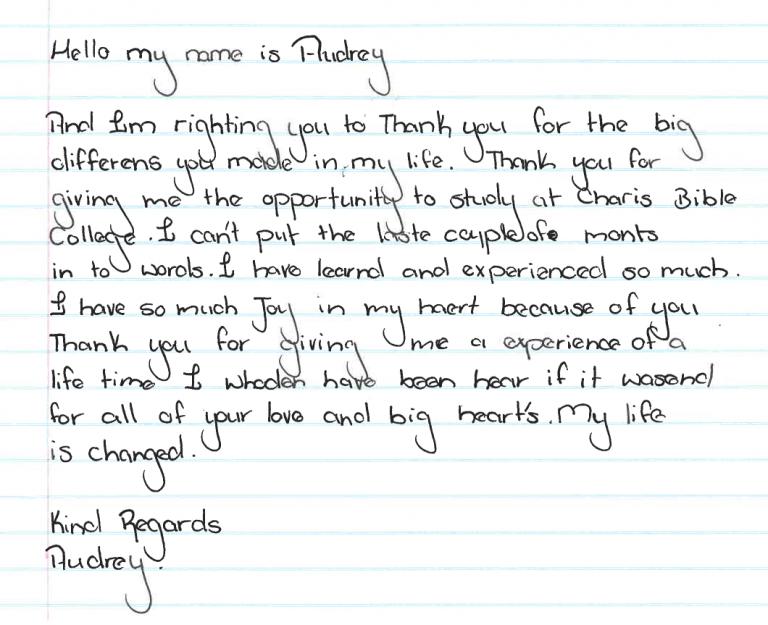 Hello my name is Audrey
And I'm righting you to Thank you for the big
differens you made in my life. Thank you for
giving me the opportunity to study at Charis Bible
College. I can't put the laste coupleofe monts
in to words. I have learnd and experienced so much.
I have so much Joy in my haert because of you
Thank you for giving me a experience of a
life time I whoden have been hear if it wasend
for all of your love and big heart's. My life
is changed.
Kind Regards
Audrey.